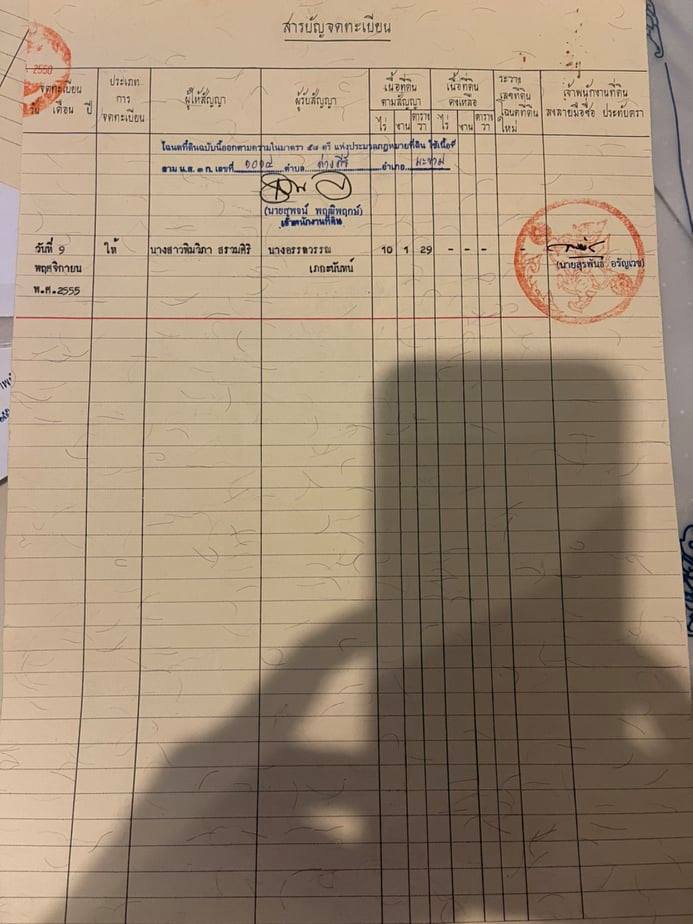 สารบัญจดทะเบียน
2550
จดทะเบียน
วัน เดือน ปี
ประเภท
การ
จดทะเบียน
ผู้ให้สัญญา
ผู้รับสัญญา
เนื้อที่ดิน
ตามสัญญา
ไร่ งาน ตาราง
วา
เนื้อที่ดิน
คงเหลือ
ไร่ งาน ตาราง
วา
ระวาง
เลขที่ดิน
โฉนดที่ดิน
ใหม่
เจ้าพนักงานที่ดิน
ลงลายมือชื่อ ประทับตรา
โฉนดที่ดินฉบับนี้ออกตามความในมาตรา ๕๘ ตรี แห่งประมวลกฎหมายที่ดิน ใช้เนื้อที่
ตาม น.ส. ๓ ก. เลขที่ ตำบล อำเภอ มะขาม
(นายสุพจน์ พฤฒิพฤกษ์)
เจ้าพนักงานที่ดิน
วันที่ 9 ให้ นางสาวพิมวิภา นางอรรตวรรณ 10 1 29 - - - -
พฤศจิกายน เภกะนันทน์
พ.ศ.2555
(นายสุรพันธ์ อรัญเวช)